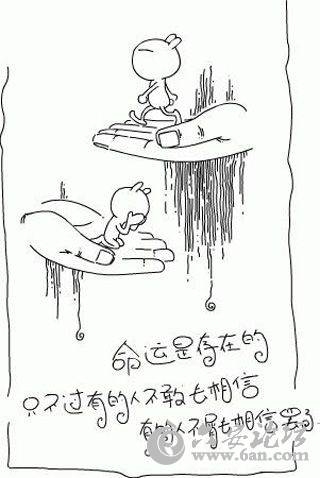 命运是存在的
只不过有的人不敢去相信
有的人不屑去相信罢了
六安论坛
www.6an.com